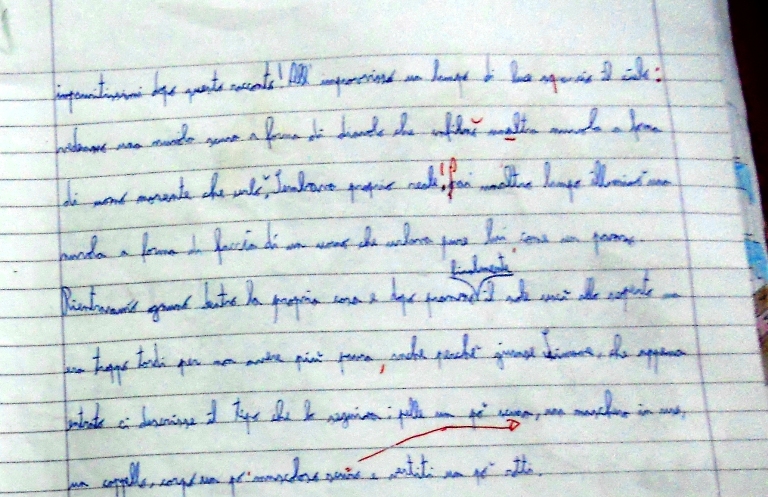 impauritissimi dopo questo racconto! All'improvvisso un lampo di luce squarcio il cielo:
vedemmo una nuvola scura a forma di diavolo che infilzò unaltra nuvola a forma
di uomo morente che urlò, Sembrava proprio reale! Poi unaltro lampo illuminò una
nuvola a forma di faccia di un uomo che urlava pure lui, come un pavone.
Rientrammo ognuno dentro la propria casa e dopo pranzo finalmente il sole uscì allo scoperto ma
era troppo tardi per non avere più paura, anche perchè giunse Simone, che appena
entrato ci descrisse il tipo che lo seguiva: pelle un po' scura, una maschera in viso,
un cappello, corpo un po' muscoloso e vestiti un po' rotti.